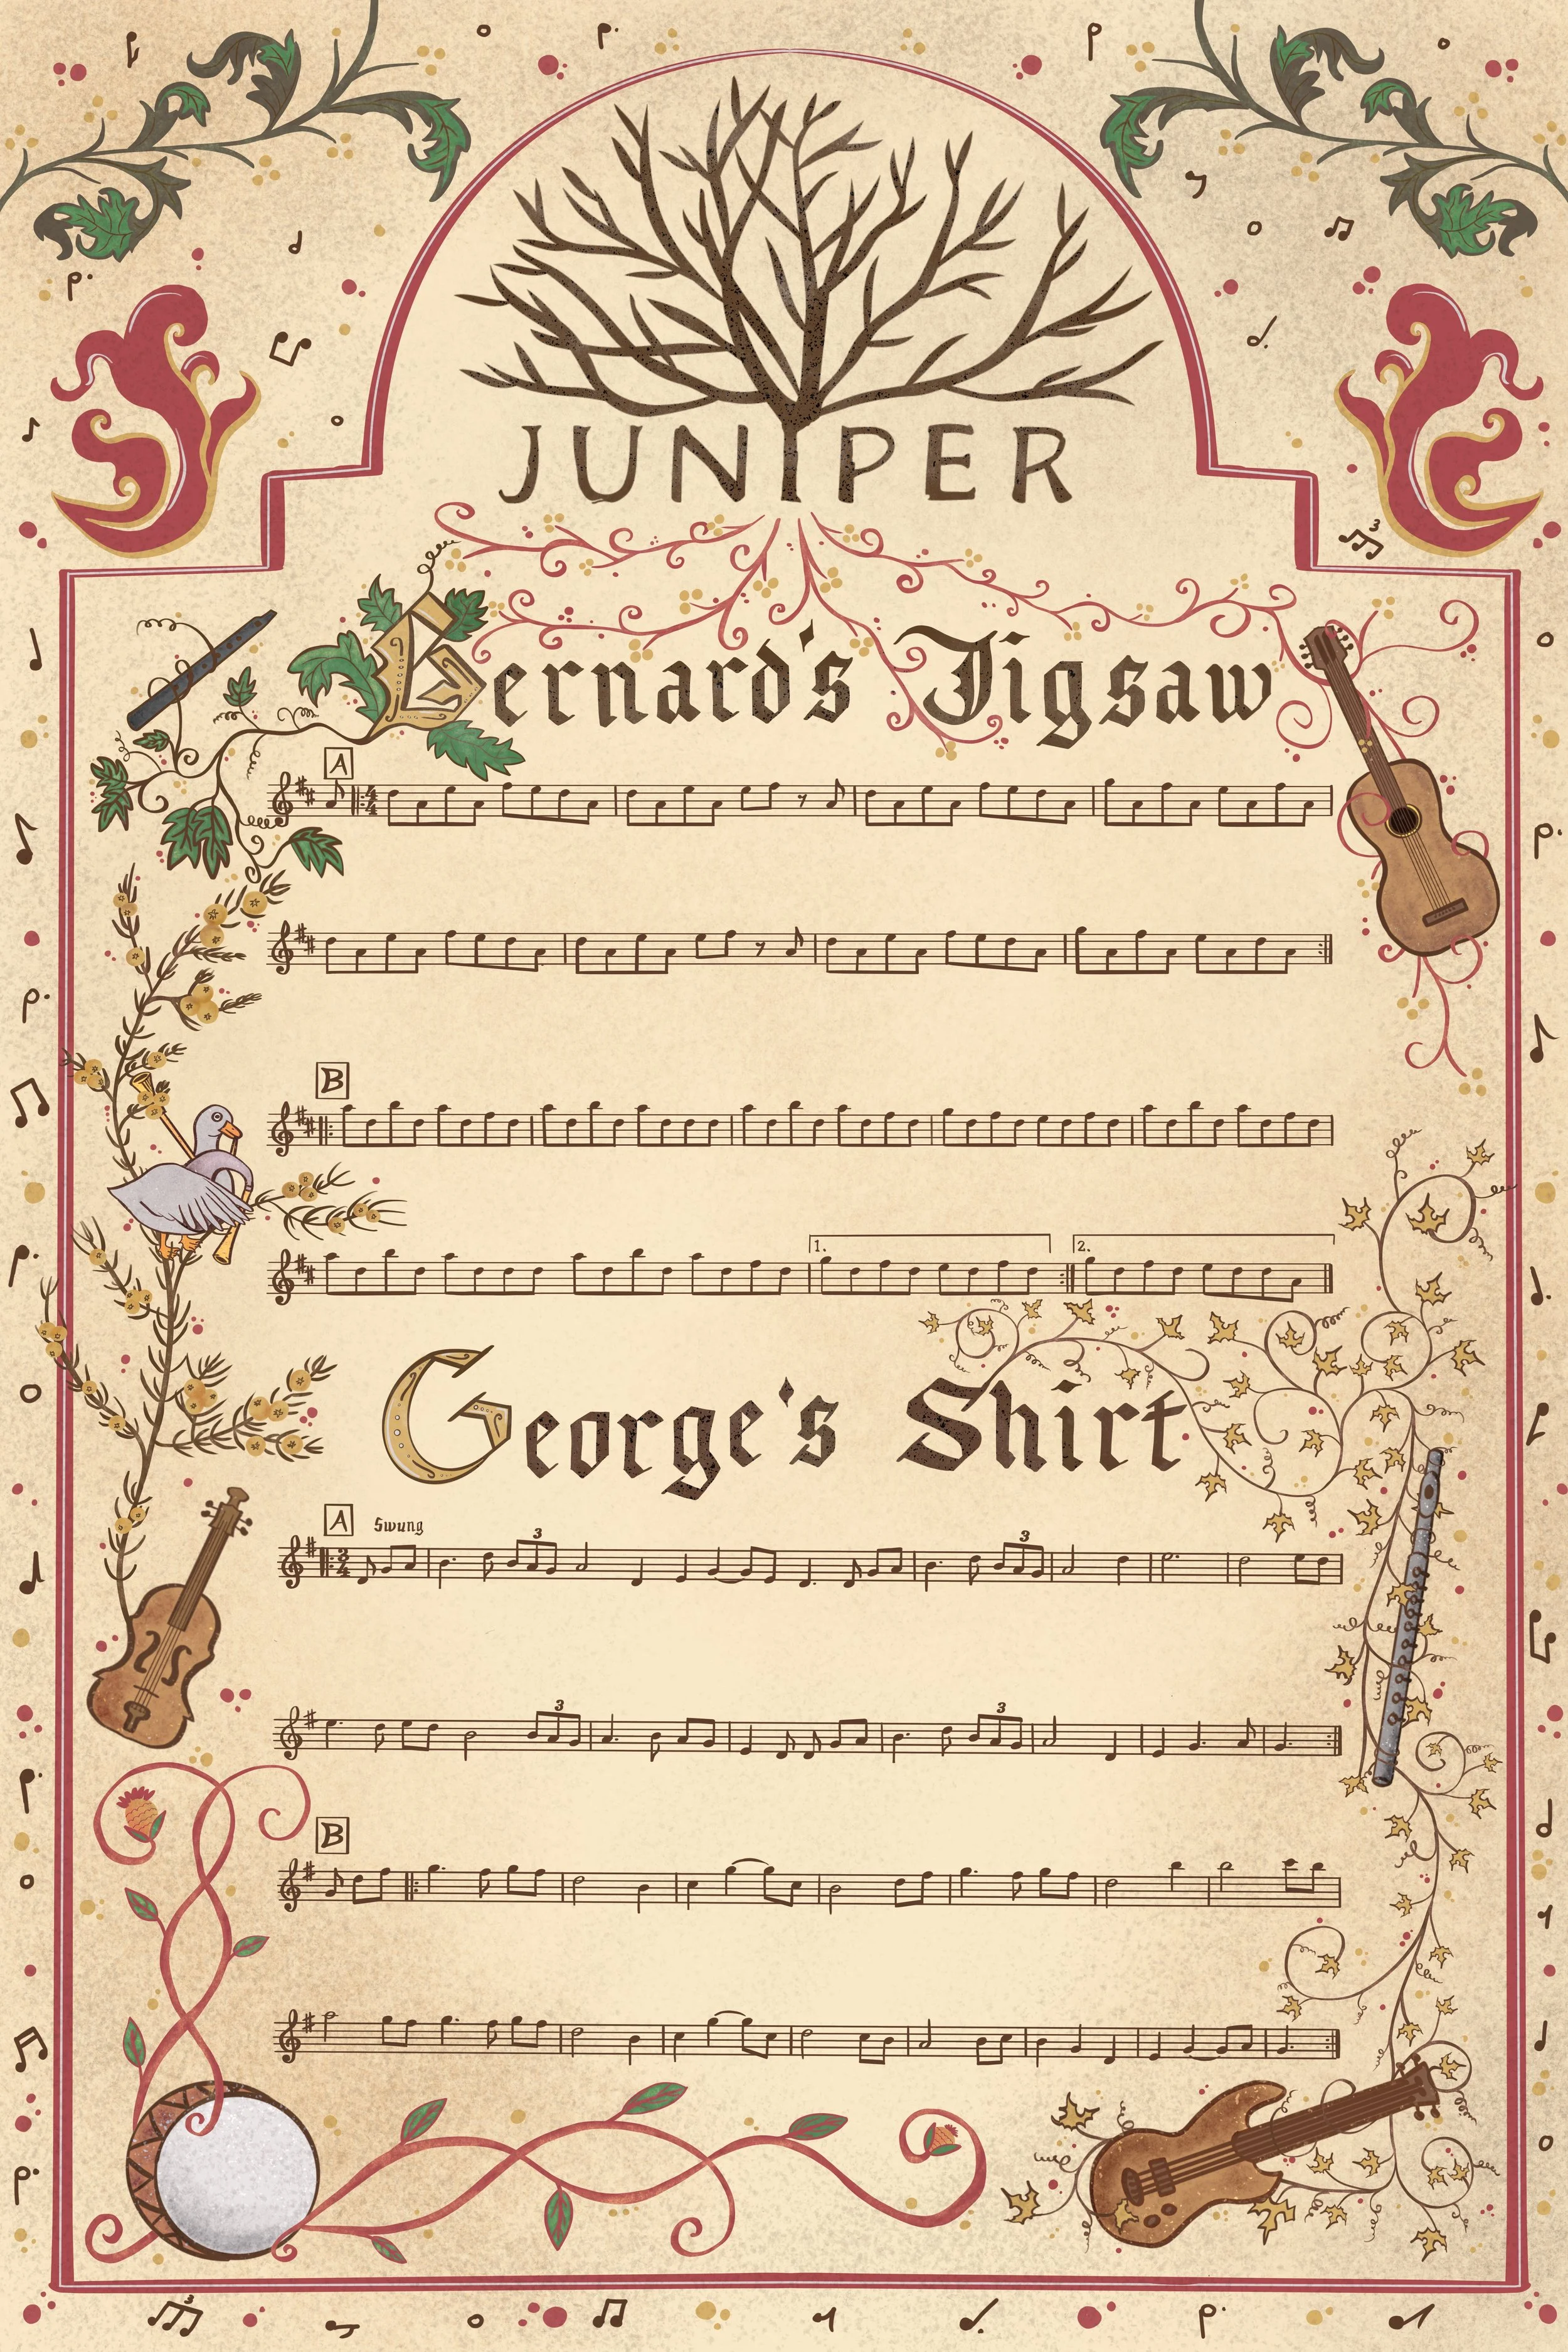 JUNIPER
Bernard's Jigsaw
A
B
1. 2.
George's Shirt
A Swung
3 3
3 3
B